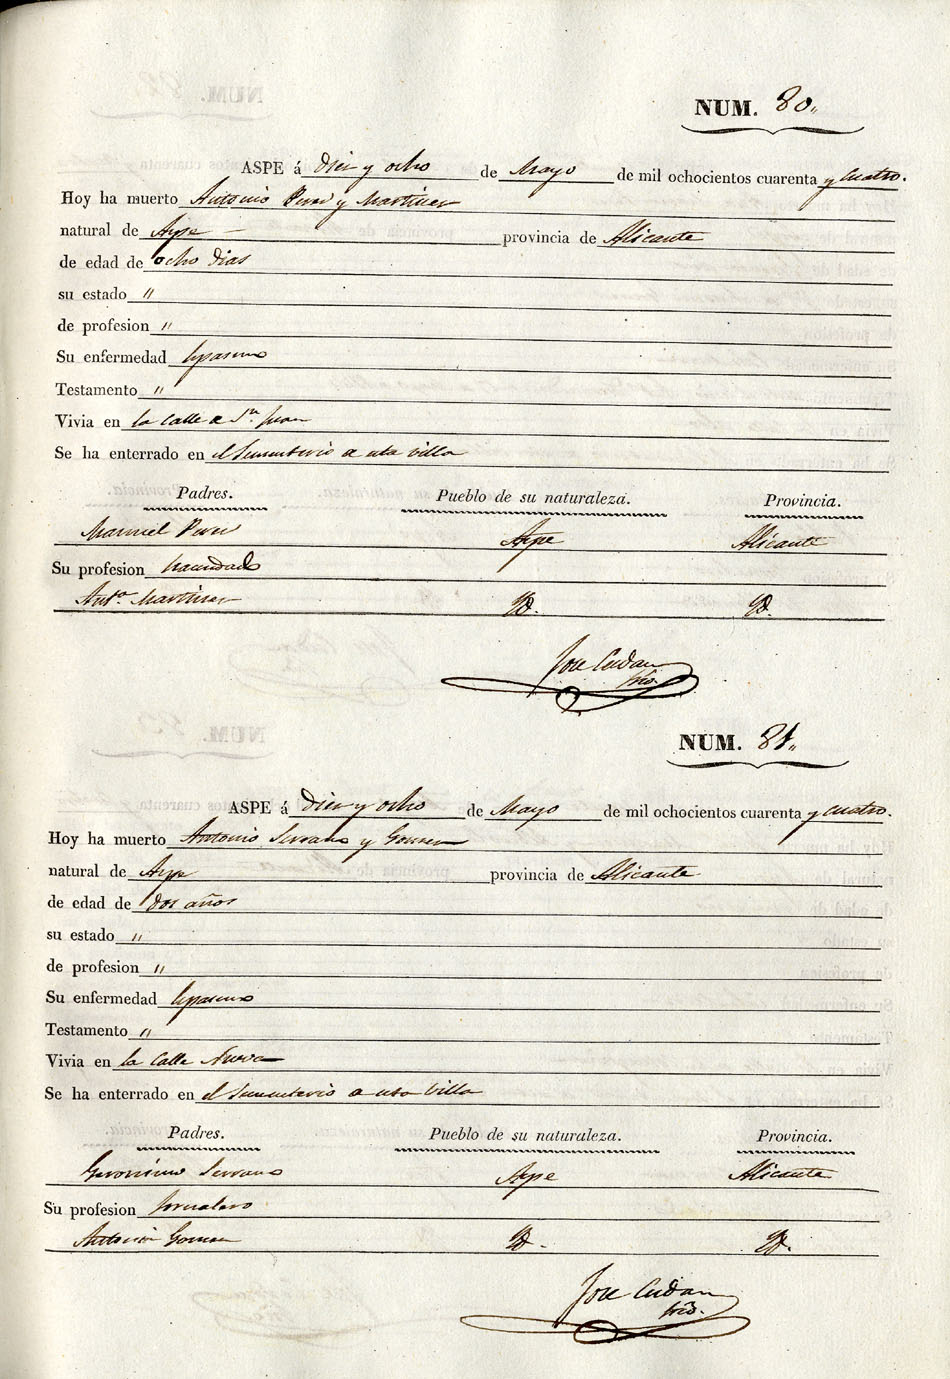 NUM. 80.
ASPE á Diez y ocho de Mayo de mil ochocientos cuarenta y cuatro.
Hoy ha muerto Antonio Perez y Martinez
natural de Aspe provincia de Alicante
de edad de ocho dias
su estado "
de profesion "
Su enfermedad Espasmo
Testamento "
Vivia en la Calle de Sn. Juan
Se ha enterrado en el Sementerio de esta villa
Padres. Pueblo de su naturaleza. Provincia.
Manuel Perez Aspe Alicante
Su profesion hacendado
Anta. Martinez Yd. Yd.
Jose Cerdan
Srio.
NUM. 81.
ASPE á Diez y ocho de Mayo de mil ochocientos cuarenta y cuatro.
Hoy ha muerto Antonio Serrano y Gomez
natural de Aspe provincia de Alicante
de edad de dos años
su estado "
de profesion "
Su enfermedad Espasmo
Testamento "
Vivia en la Calle Nueva
Se ha enterrado en el Sementerio de esta Villa
Padres. Pueblo de su naturaleza. Provincia.
Geronimo Serrano Aspe Alicante
Su profesion Jornalero
Antonia Gomez Yd. Yd.
Jose Cerdan
Srio.